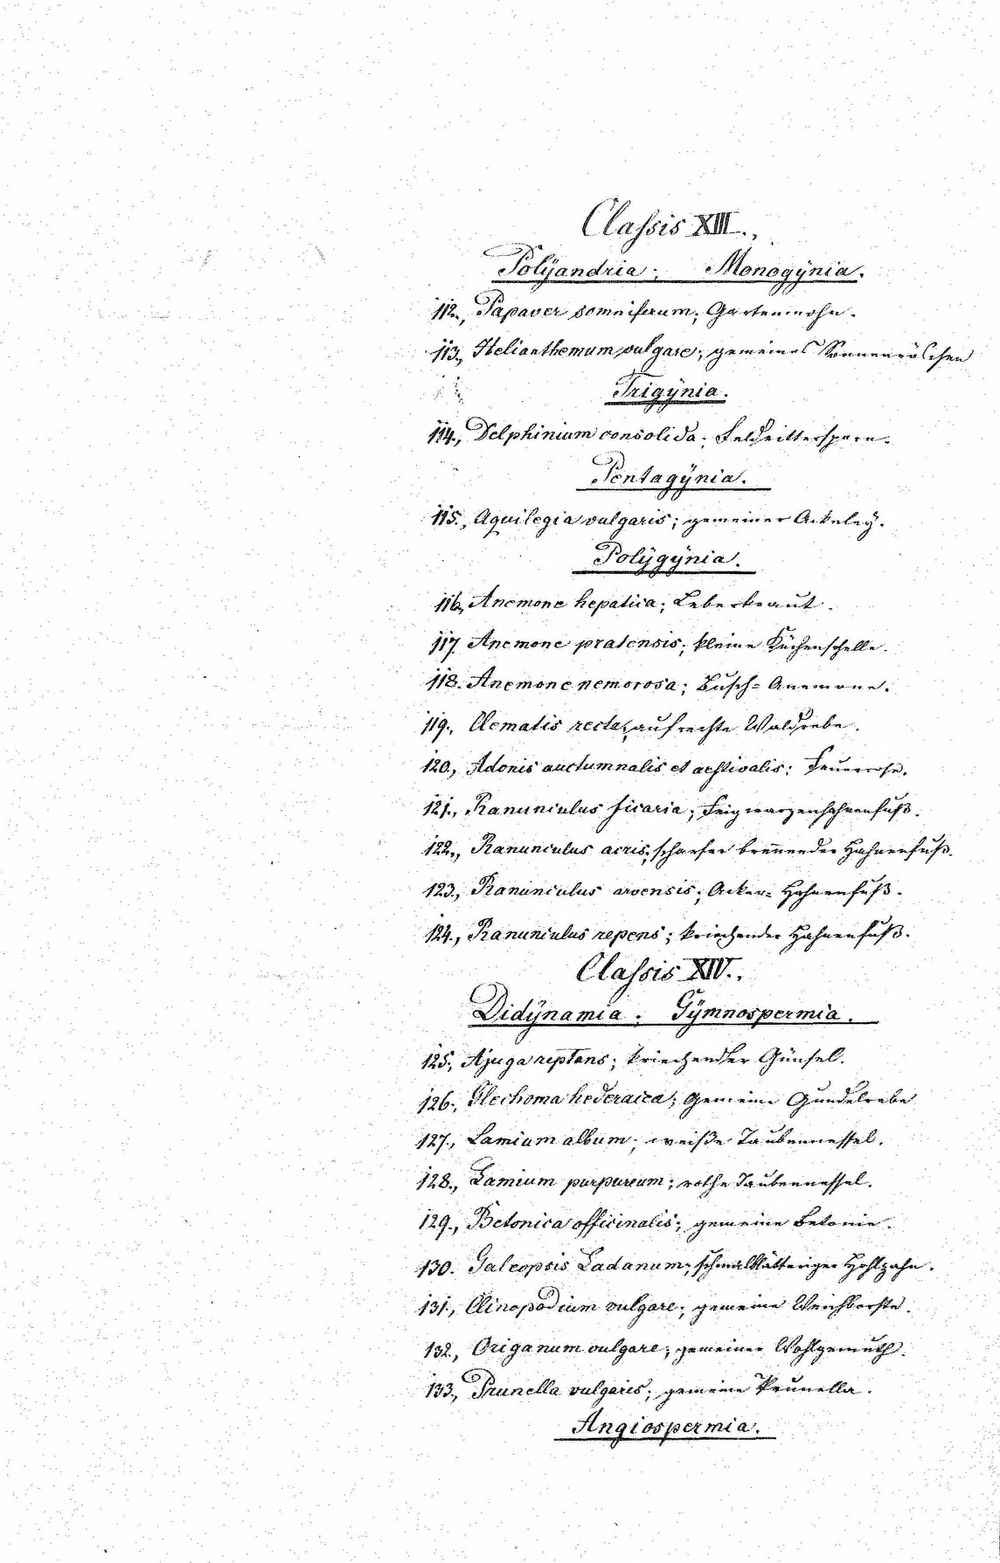 Classis XIII.,
Polÿandria. Monogÿnia.
112., Papaver somniferum; Gartenmohn.
113., Helianthemum vulgare; gemeines Sonnenröschen
Trigÿnia.
114., Delphinium consolida; Feldrittersporn.
Pentagÿnia.
115., Aquilegia vulgaris; gemeiner Ackeleÿ.
Polÿgÿnia.
116., Anemone hepatica; Leberkraut.
117. Anemone pratensis; kleine Küchenschelle.
118. Anemone nemorosa; Busch= Anemone.
119., Clematis recta; aufrechte Waldrebe.
120., Adonis auctumnalis et aestivalis; Feuerrose.
121., Ranunculus ficaria; Feigwarzenhahnenfuß.
122., Ranunculus acris; scharfer brennender Hahnenfuß.
123., Ranunculus arvensis; Acker= Hahnenfuß.
124., Ranunculus repens; kriechender Hahnenfuß.
Classis XIV.,
Didÿnamia. Gÿmnospermia.
125., Ajuga reptans; kriechender Günsel.
126., Glechoma hederaica; Gemeine Gundelrebe
127., Lamium album; weiße Taubennessel.
128., Lamium purpureum; rothe Taubennessel.
129., Betonica officinalis; gemeine Betonie.
130. Galeopsis Ladanum; schmalblätteriger Hohlzahn.
131., Clinopodium vulgare; gemeine Weichborste.
132., Origanum vulgare; gemeiner Wohlgemuth.
133., Prunella vulgaris; gemeine Prunella.
Angiospermia.